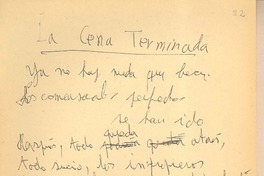 32
La Cena Terminada
Ya no hay nada que hacer.
Los comensales perfectos
se han ido
queda
todo atrás,
todo sucio, los